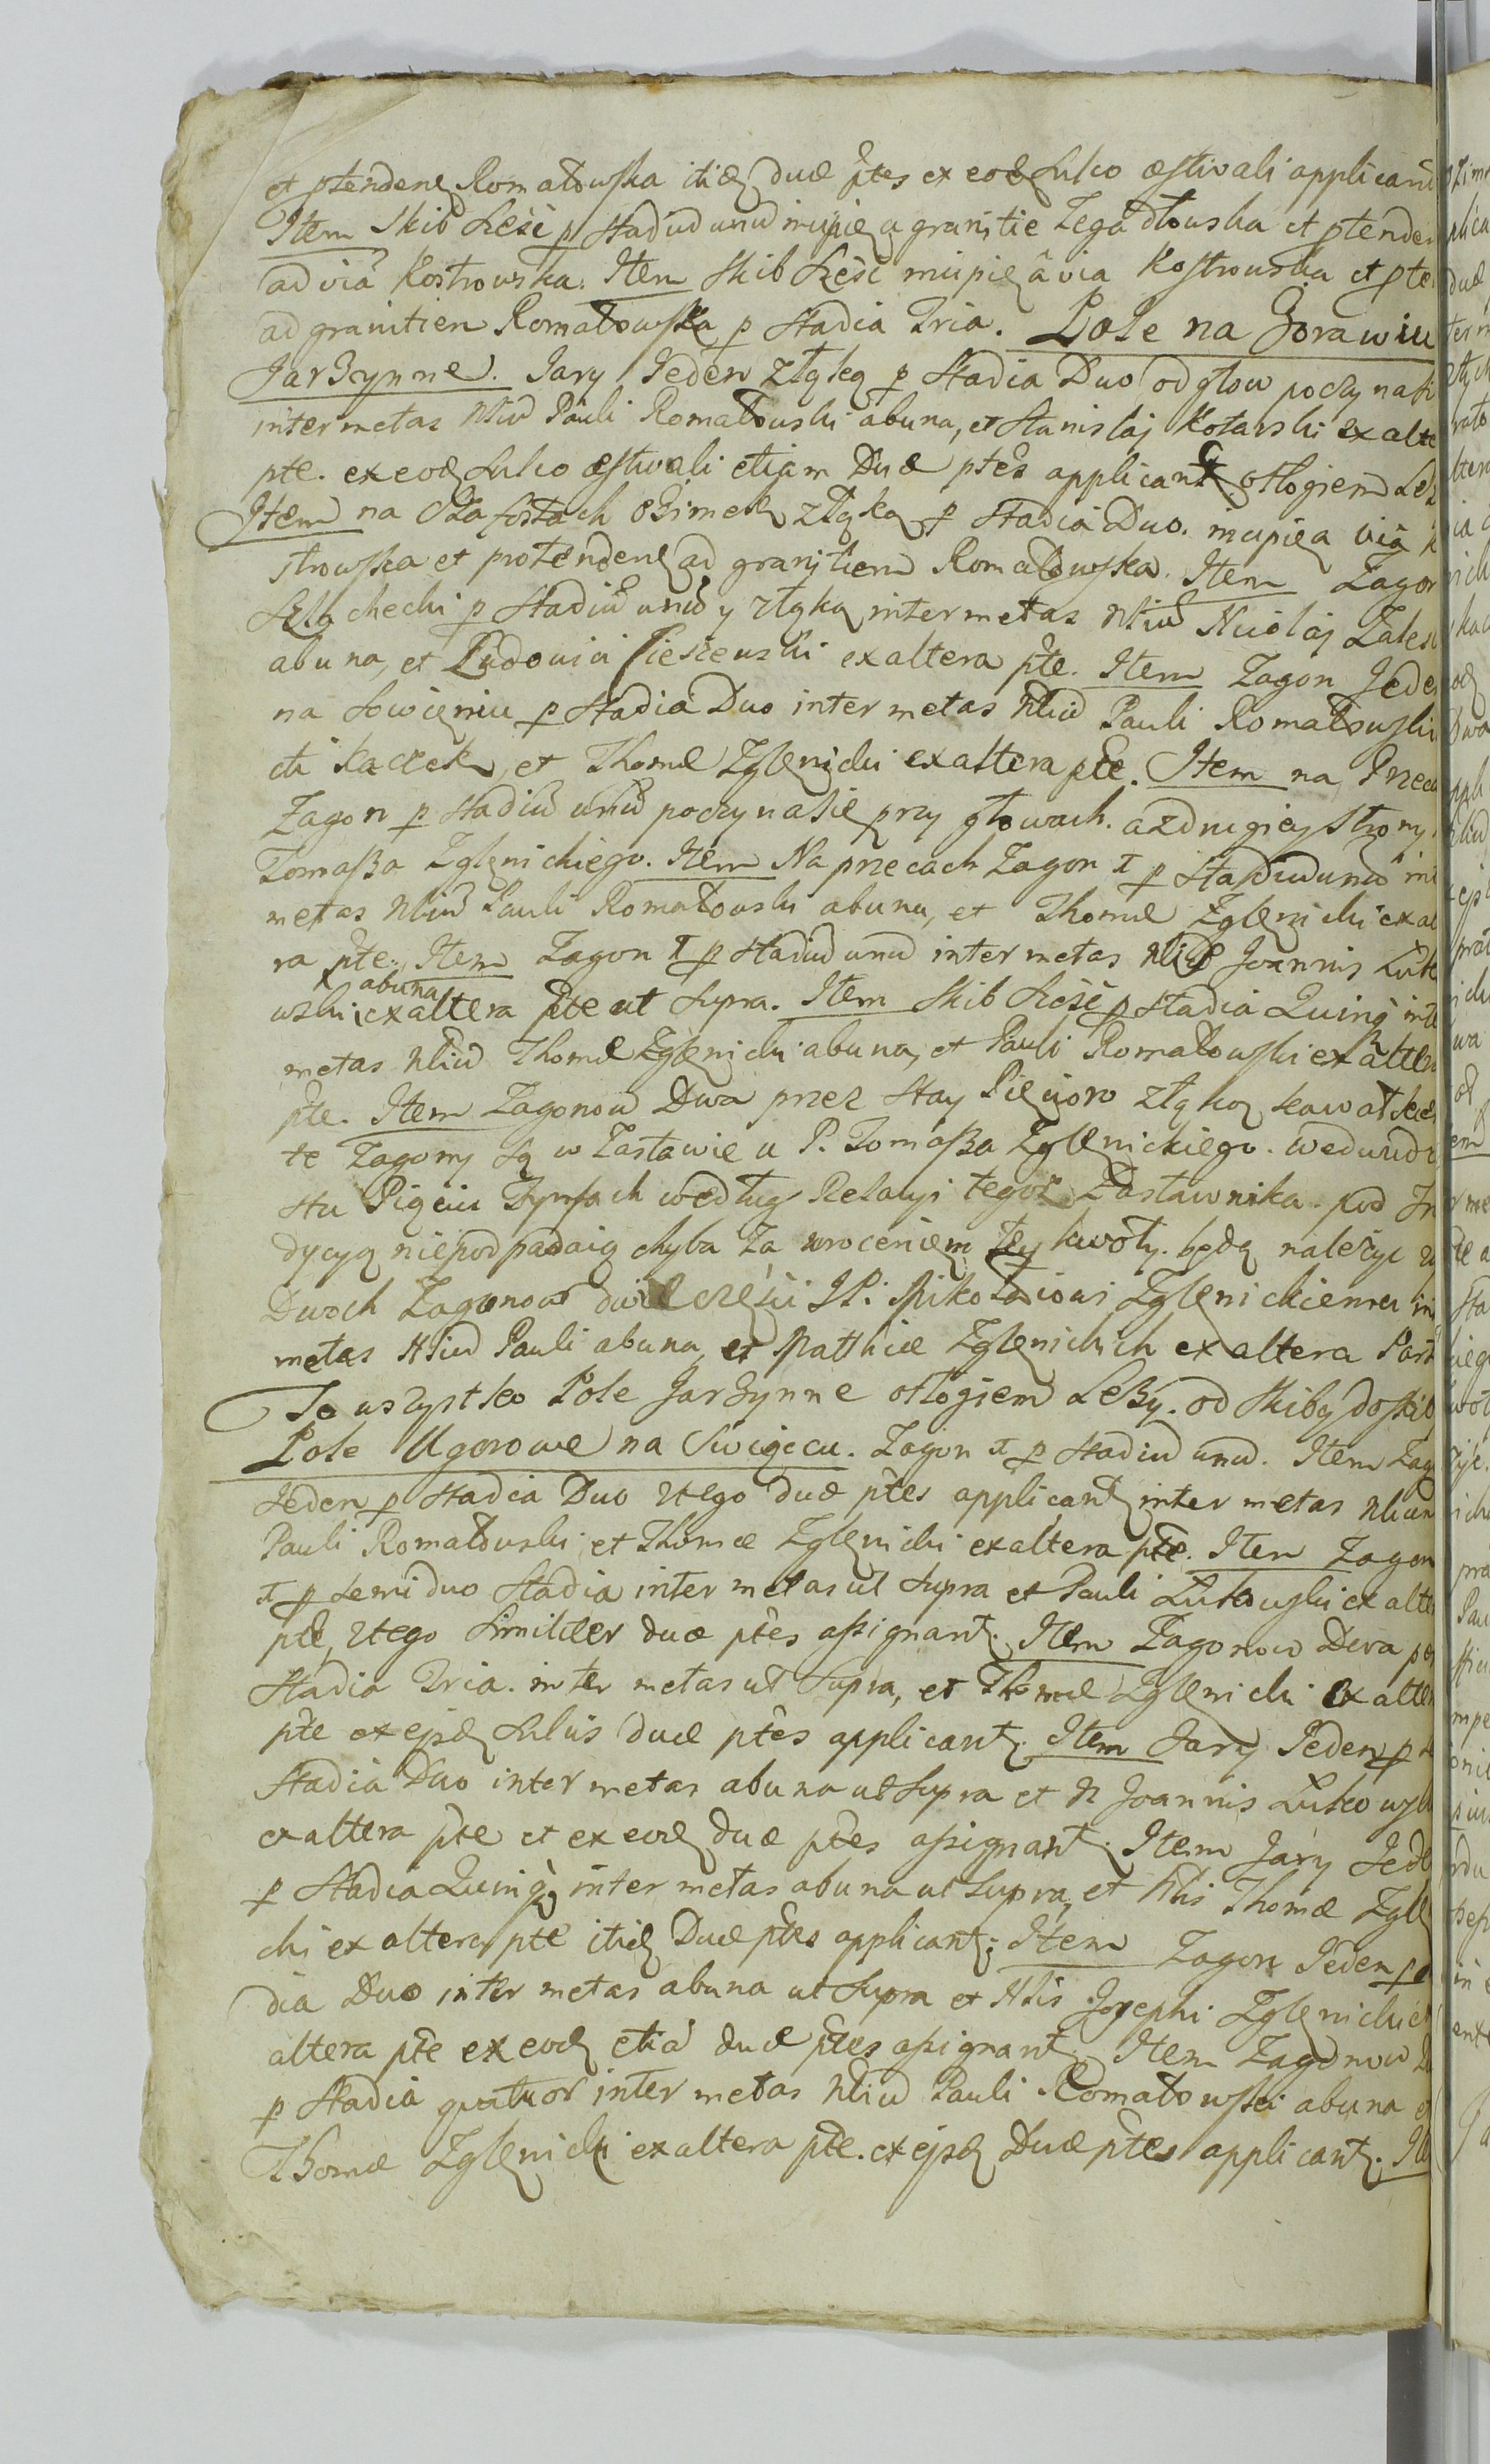 et ptendenę Romatowska itię duæ ptes ex eodę Sulco æstivali applicant
Item Skib Sześć p Stadiũ unũ incipię a granitie Zegadłowska et ptenden
ad viã Kostrowska. Item Skib Sześć incipię â via Kostrowska et pte
ad granitien Romatowska p Stadia Tria. Pole na Zorawiu
Jarzynne. Jary Jeden z łąką p Stadia Duo od głow poczyna si
inter metas Nliũ Pauli Romatowski ab una, et Stanislaj Kotarski ex alte
pte. ex eodę Sulco æstivali etiam Duæ ptes applicant. ottogiem Leż
Item na Szafostach Ozimek z łąką p Stadia Duo. incipię a via K
strowska et protendenę ad granitiem Romatowska. Item Zagon
Szlachecki p Stadiũ unũ y z łąką inter metas Nliũ Nicolaj Zales
ab una, et Ludovici Ciesiewski ex altera pte. Item Zagon Jede
na Sowieniu p Stadia Duo inter metas Nliũ Pauli Romatowski
cti Kaczek, et Thomæ Zglenicki ex altera pte. Item na Przecz
Zagon p Stadiũ unũ poczyna się przy głowach. a z drugiey strony
Tomasza Zglenickiego. Item Na przecach Zagon 1 p Stadiũ unũ int
metas Nliũ Pauli Romatowski ab una, et Thomæ Zglenicki ex al
ra pte. Item Zagon 1 p Stadiũ unũ inter metas Nliũ Joannis Lutk
ab una
wski ex altera pte ut Supra. Item Skib Sześć p Stadia Quinq inte
metas Nliũ Thomæ Zglenicki ab una, et Pauli Romatowski ex alter
pte. Item Zagonow Dwa przez Stay Pięcioro z łąką kawałkie
te Zagony są w Zastawie u P. Tomasza Zglenickiego. we dwudz
stu Pięciu Tynfach według Relacyi tegoż Zastawnika. pod Ju
dycyą niepodpadaią chyba za wroceniem tey kwoty. będą należyć z
Dwoch Zagonow dwie części JP: Mikołaiowi Zglenickiemu in
metas Nliũ Pauli ab una, et Matthiæ Zglenickich ex altera Part
To wszystko Pole Jarzynne ottogiem Leży. od Skiby do Skib
Pole Ugorowe na Swięcu. Zagon 1 p Stadiũ unũ. Item Zag
Jeden p Stadia Duo z tego duæ ptes applicant inter metas Nliũ
Pauli Romatowski et Thomæ Zglenicki ex altera pte. Item Zagon
1 p Semi duo Stadia inter metas ut Supra et Pauli Lutkowski ex alte
pte, z tego Similiter duæ ptes assignant. Item Zagonow Dwa p
Stadia Tria. inter metas ut Supra, et Thomæ Zglenicki ex alter
pte ex ejsdę Sulcis duæ ptes applicant. Item Jary Jeden p
Stadia Duo inter metas ab una ut Supra et N Joannis Lutkowsk
ex altera pte et ex eodę duæ ptes assignant. Item Jary Jede
p Stadia Quinq inter metas ab una ut Supra, et Nlis Thomæ Zgle
cki ex altera pte itię Duæ ptes applicant; Item Zagon Jeden p
dia Duo inter metas ab una ut Supra et Nlis Josephi Zglenicki
altera pte ex eodę etiã duæ ptes assignant. Item Zagonow D
p Stadia quatuor inter metas Nliũ Pauli Romatowski ab una e
Thomæ Zglenicki ex altera pte. ex ejsdę Duæ ptes applicant. Ite